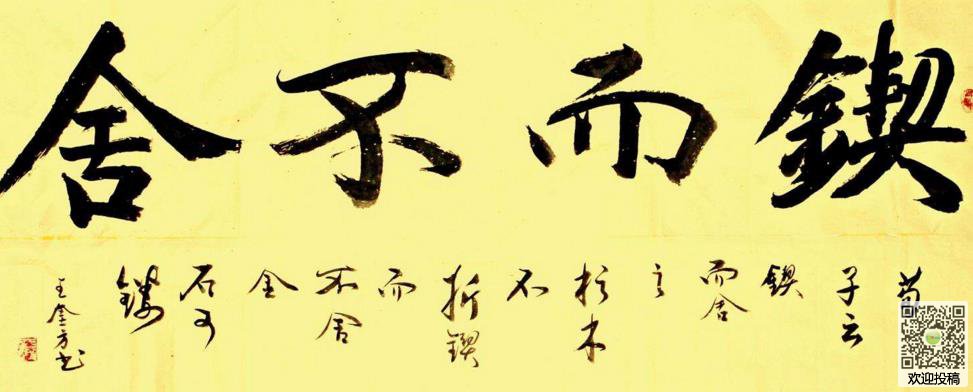 鍥而不舍
荀子云鍥而舍之朽木不折鍥而不舍金石可鏤
王金方书
欢迎投稿